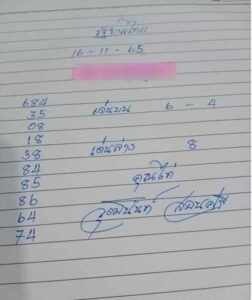 รัฐบาลไทย
16 - 11 - 65
684
35 เด่นบน 6 - 4
08
18
38 เด่นล่าง 8
84
85
86
64
74